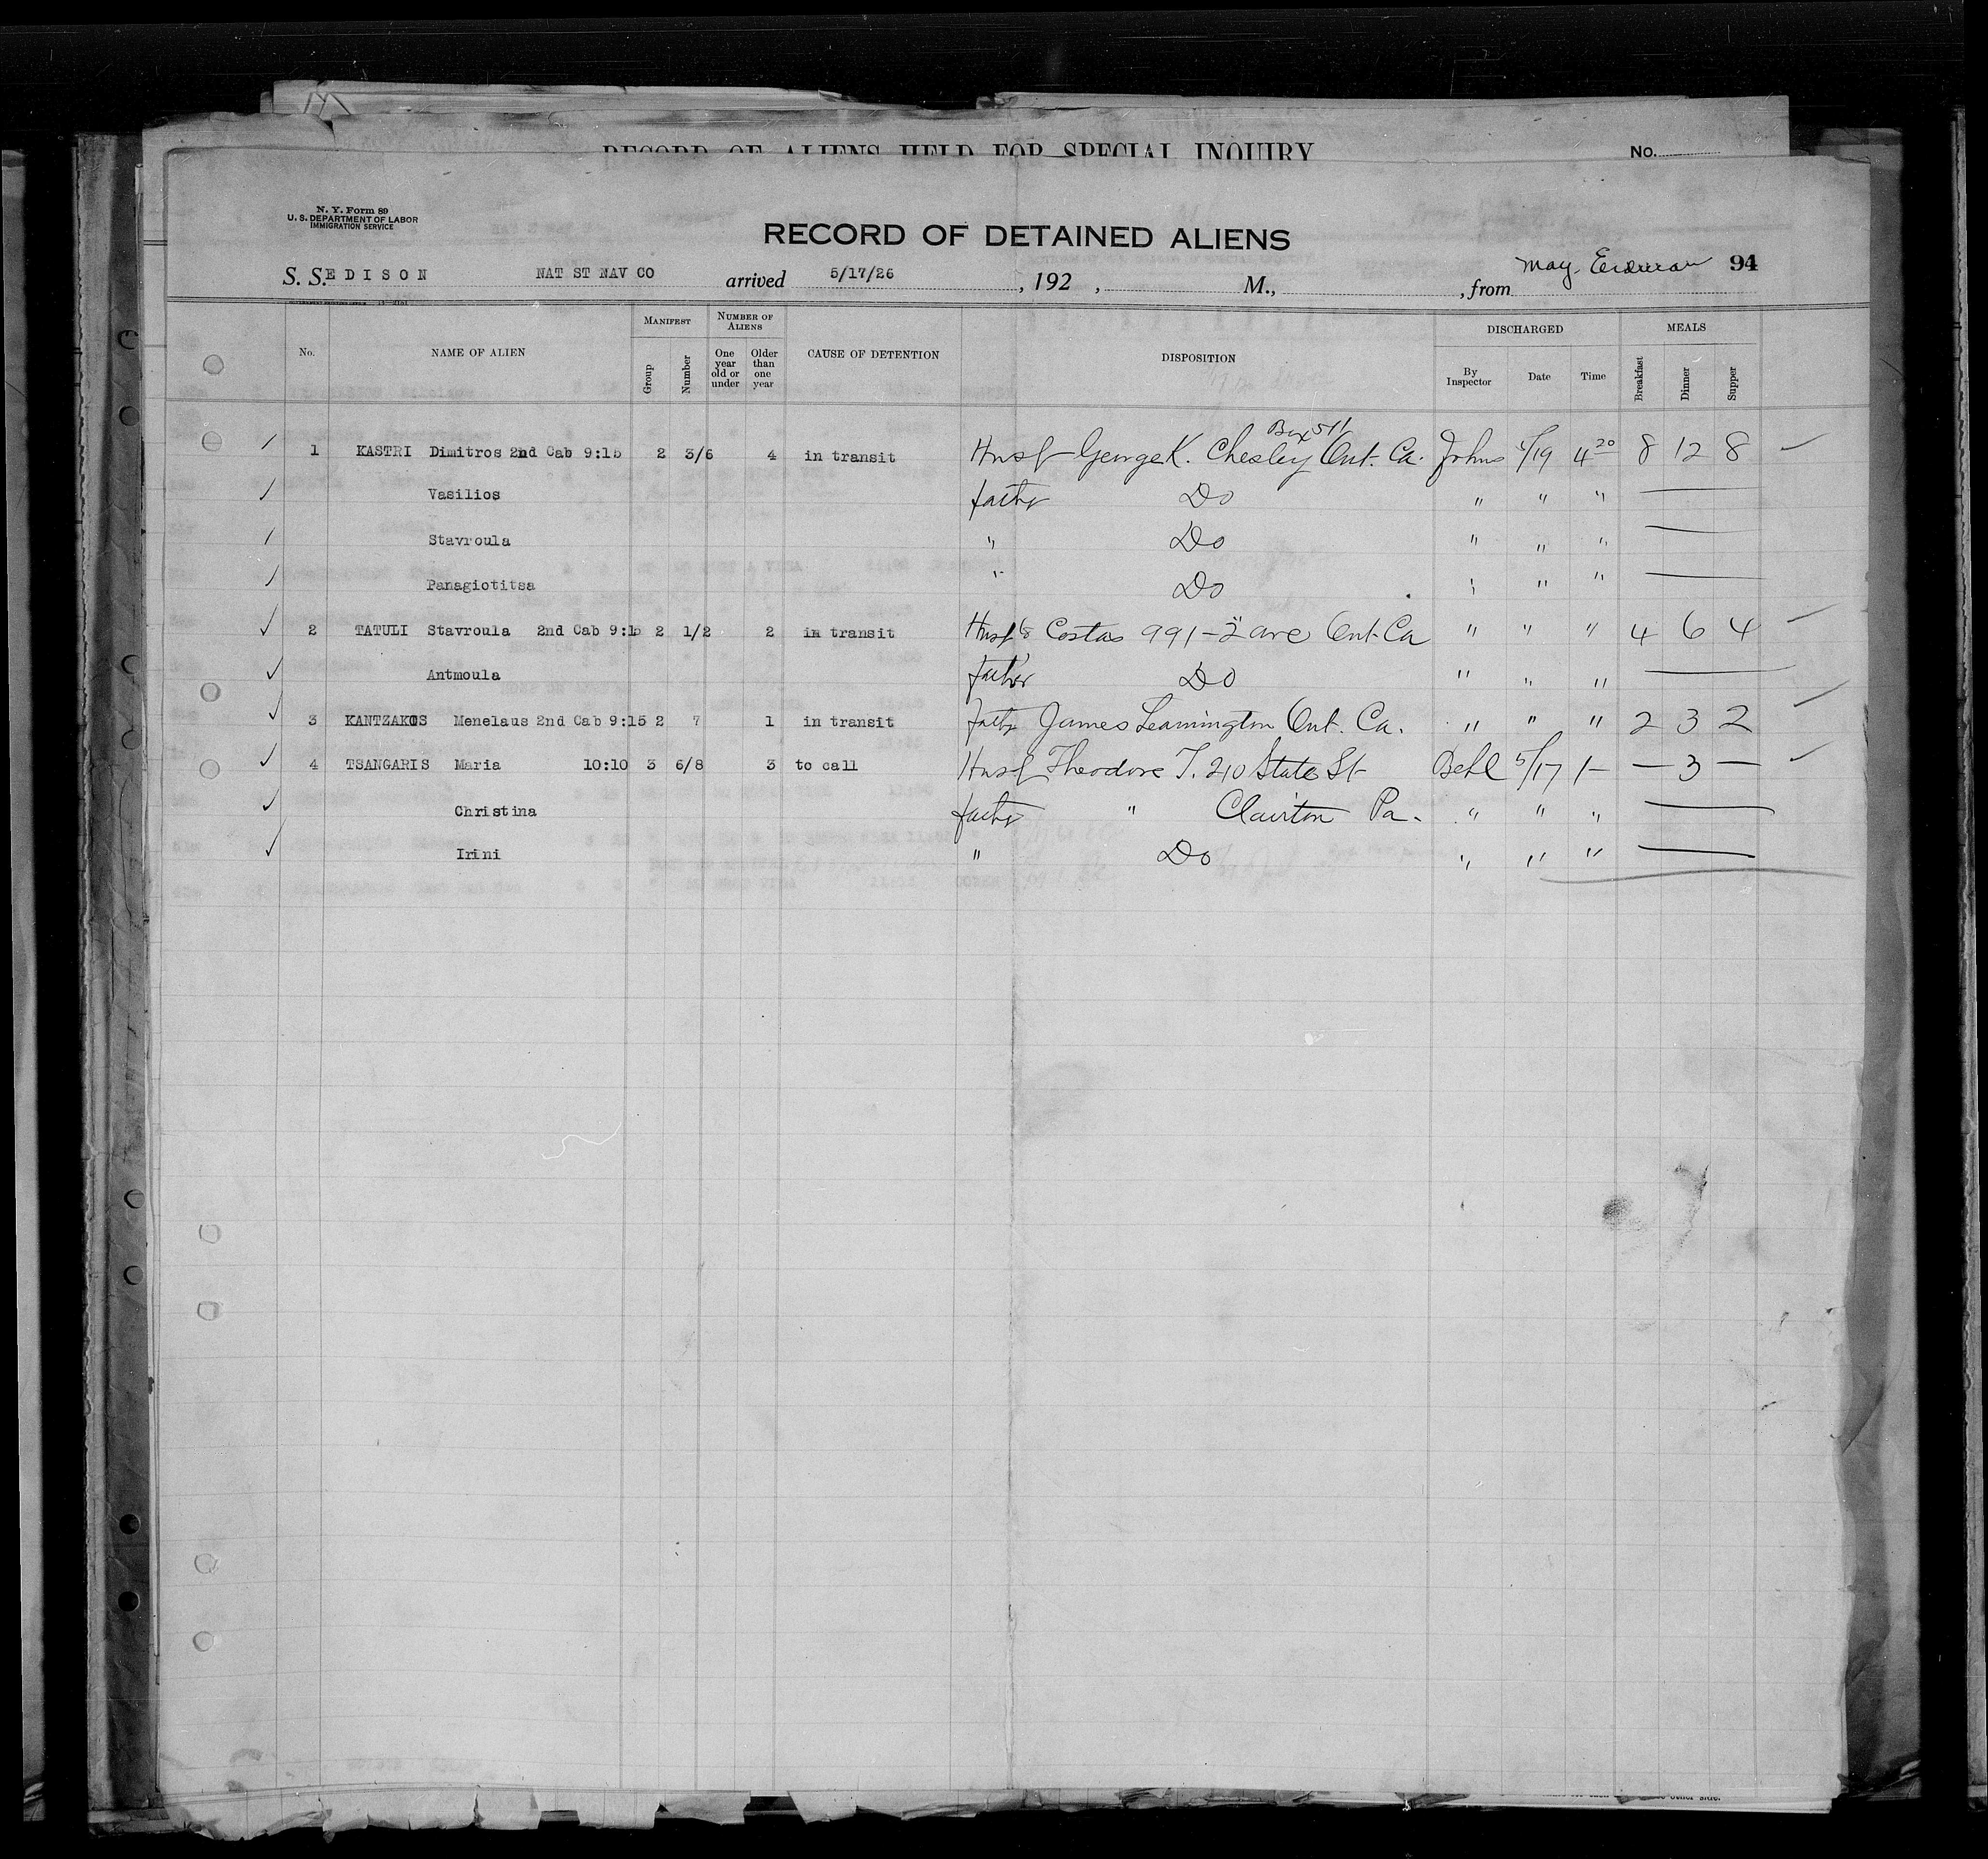 RECORD OF ALIENS HELD FOR SPECIAL INQUIRY No.
N. Y. Form 89
U. S. DEPARTMENT OF LABOR
IMMIGRATION SERVICE
RECORD OF DETAINED ALIENS
S. S. EDISON NAT ST NAV CO arrived 5/17/26, 192 , M., , from May. 94
No. NAME OF ALIEN MANIFEST Group Number NUMBER OF ALIENS One year old or under Older than one year CAUSE OF DETENTION DISPOSITION DISCHARGED By Inspector Date Time MEALS Breakfast Dinner Supper
Box 511
1 KASTRI Dimitros 2nd Cab 9:15 2 3/6 4 in transit Husb George K. Chesley Ont. Ca. Johns 5/19 4 20 8 12 8
Vasilios father Do " " "
Stavroula " Do " " "
Panagiotitsa " Do " " "
2 TATULI Stavroula 2nd Cab 9:15 2 1/2 2 in transit Husb Costas 991-2" ave Ont-Ca " " " 4 6 4
Antmoula father Do " " "
3 KANTZAKOS Menelaus 2nd Cab 9:15 2 7 1 in transit father James Leamington Ont. Ca. " " " 2 3 2
4 TSANGARIS Maria 10:10 3 6/8 3 to call Husb Theodore T. 210 State St Behl 5/17 1- — 3 —
Christina father " Clairton Pa. " " "
Irini " Do " " "